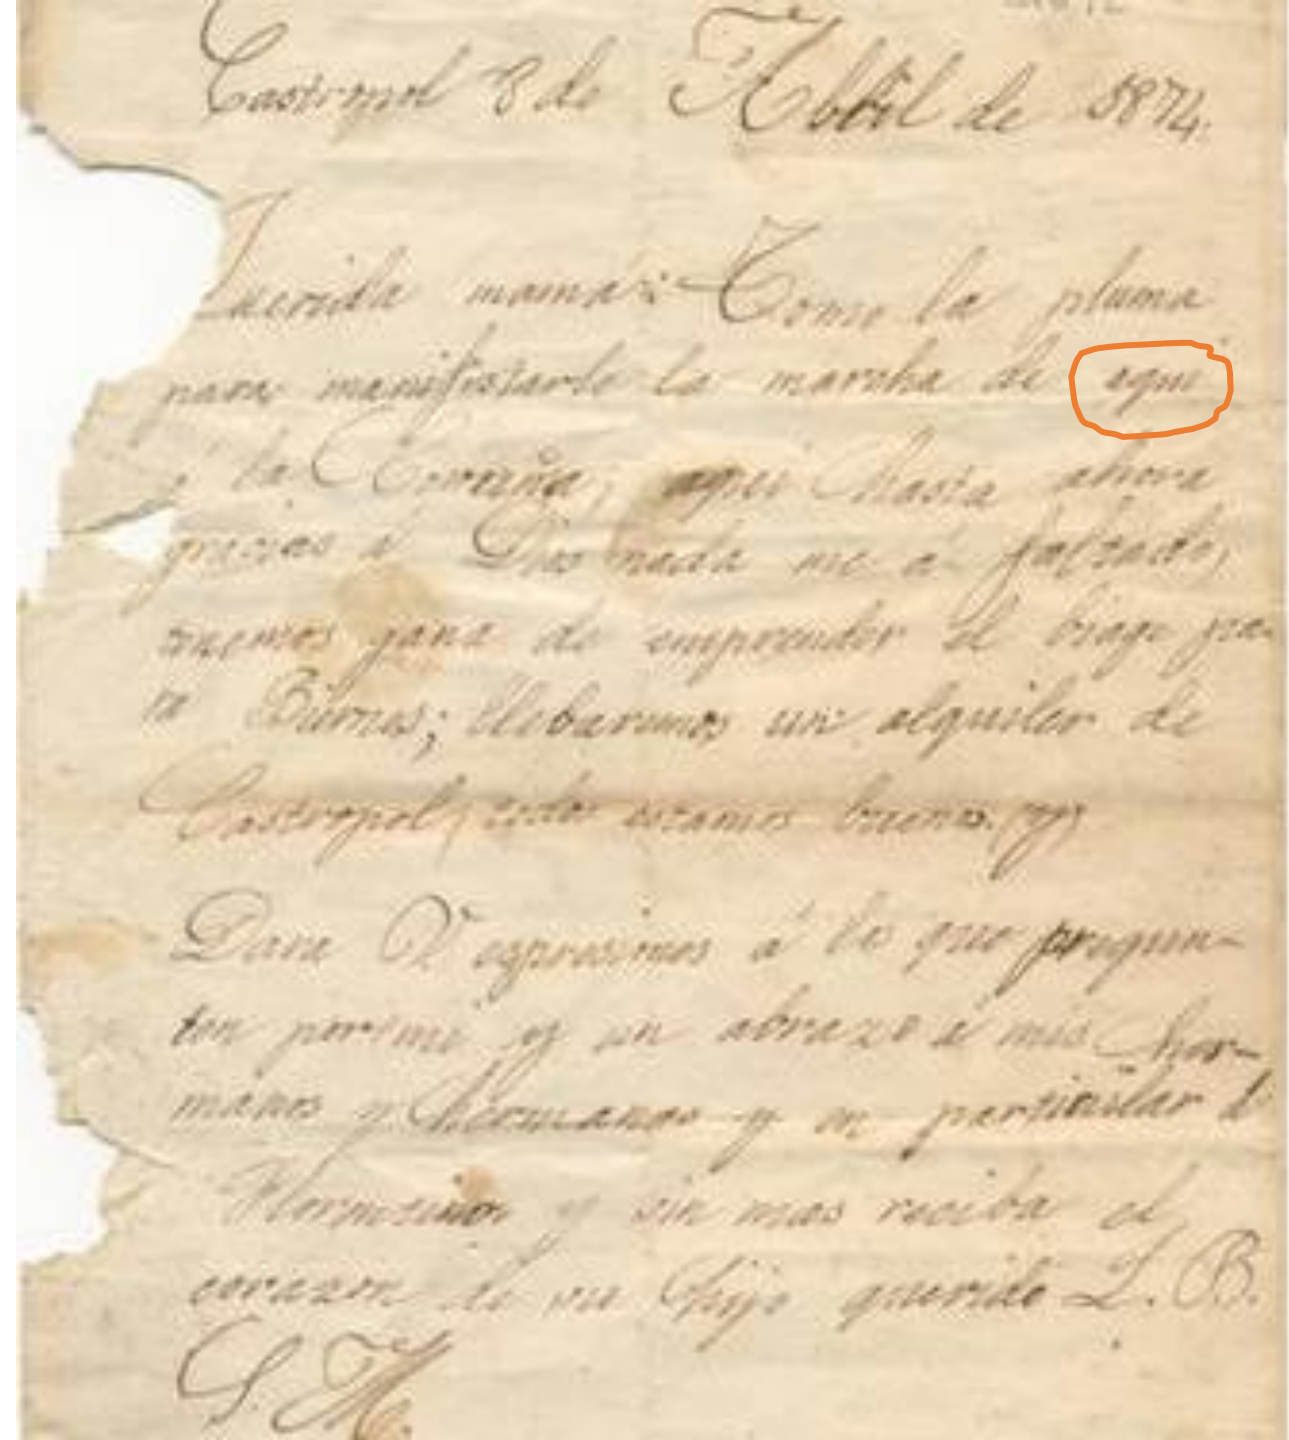 Castropol 8 de Abbril de 1874.
Querida mamá: Tomo la pluma
para manifestarle la marcha de aqui
á la Coruña; aqui hasta ahora
gracias á Dios nada me á faltado,
tenemos gana de emprender el biage pa-
ra Burnes; llebaremos un alquiler de
Castropol, todos estamos buenos. y
Dara V. espresiones á los que pregun-
ten por mi y un abrazo á mis her-
manos y hermanas y en particular á
y sin mas reciba el
corazon de su hijo querido L. B.
S. M.